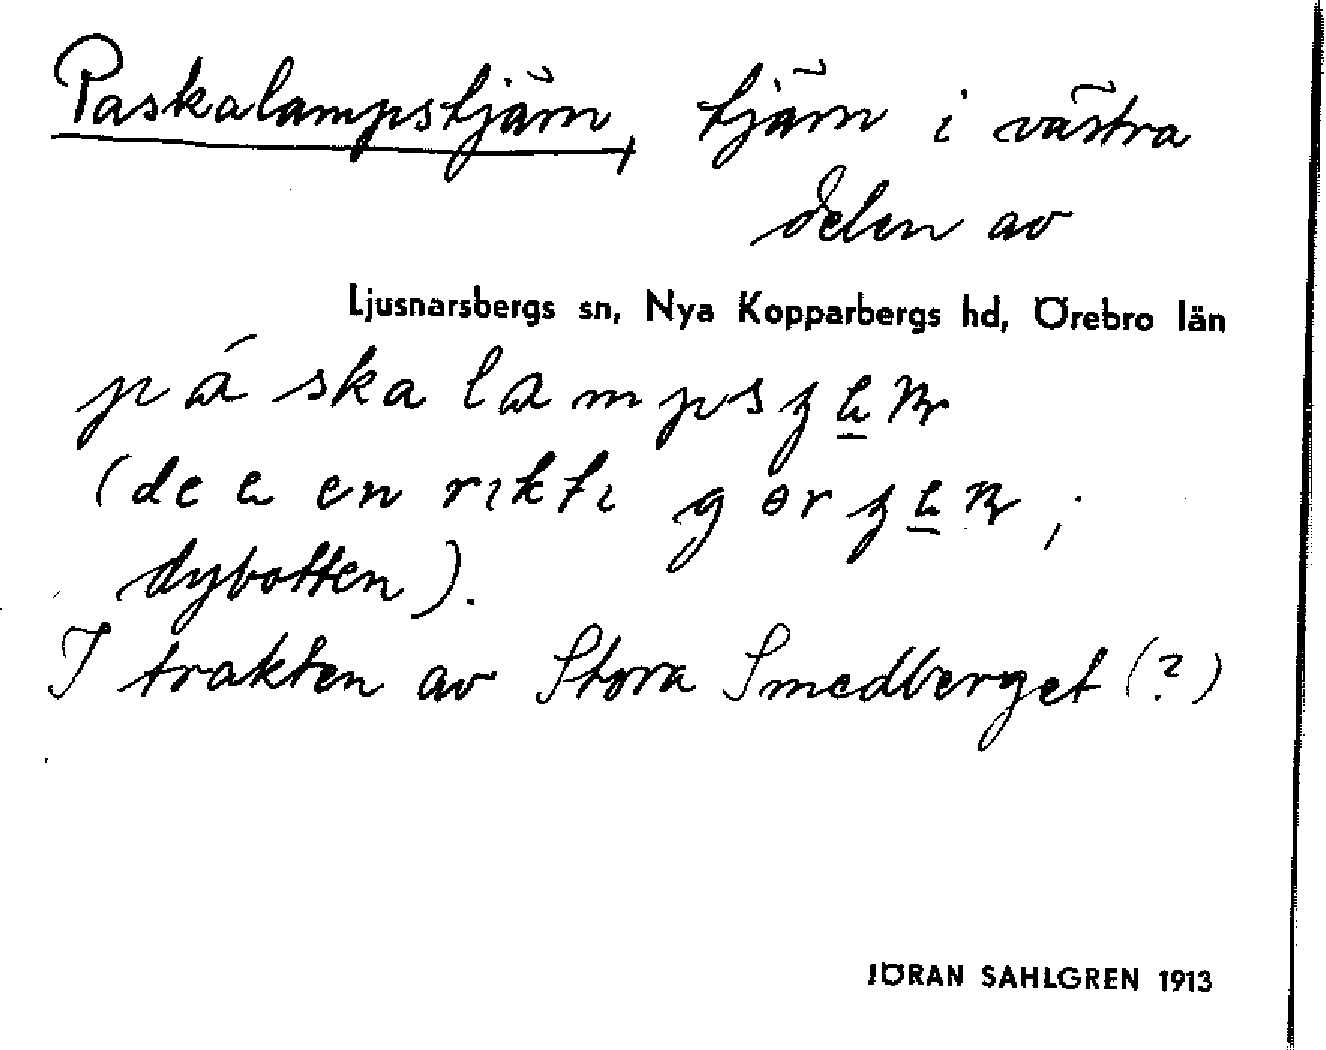 Paskalampstjärn, tjärn i västra
delen av
Ljusnarsbergs sn, Nya Kopparbergs hd, Örebro län
(de e en rikti
dybotten).
I trakten av Stora Smedberget (?)
JÖRAN SAHLGREN 1913